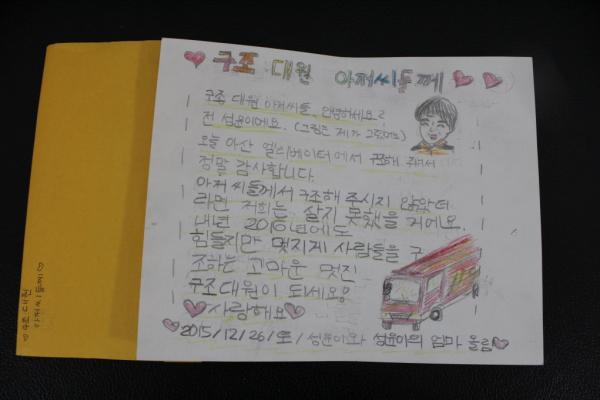 구조 대원 아저씨들께
구조 대원 아저씨들, 안녕하세요?
전 성윤이에요. (그림은 제가 그렸어요)
오늘 아산 엘리베이터에서 구해 줘서
정말 감사합니다.
아저씨들께서 구조해 주시지 않았더
라면 저희는 살지 못했을 거에요.
내년 2016년에도
힘들지만 멋지게 사람들을 구
조하는 고마운 멋진
구조대원이 되세요!
사랑해요
2015/12/26/토/ 성윤이와 성윤이의 엄마 올림
♡구조 대원
아저씨들께♡